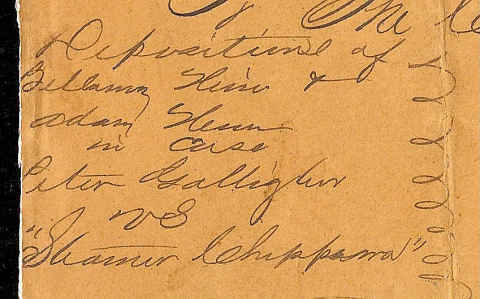 of The
Depositions of
Bellamy Hein &
Adam Hein
in case
Peter Galligher
vs
"Steamer Chippewa"